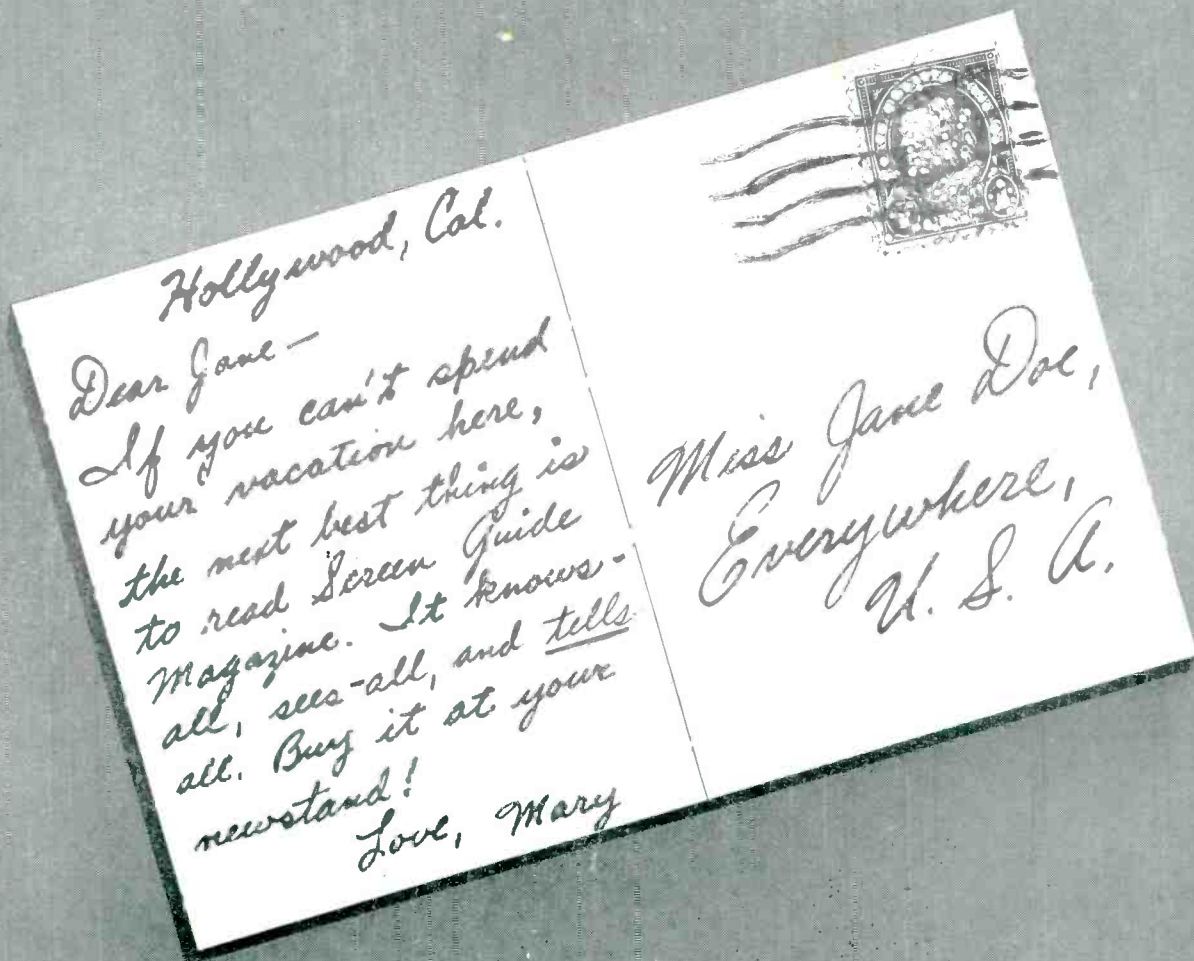 Hollywood, Cal.
Dear Jane —
If you can't spend
your vacation here,
the next best thing is
to read Screen Guide
Magazine. It knows-
all, sees-all, and tells
all. Buy it at your
newstand!
Love, Mary
Miss Jane Doe,
Everywhere,
U. S. A.